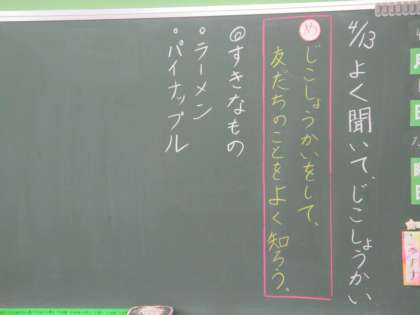 4/13 よく聞いて、じこしょうかい
め じこしょうかいをして、
友だちのことをよく知ろう。
◎すきなもの
・ラーメン
・パイナップル